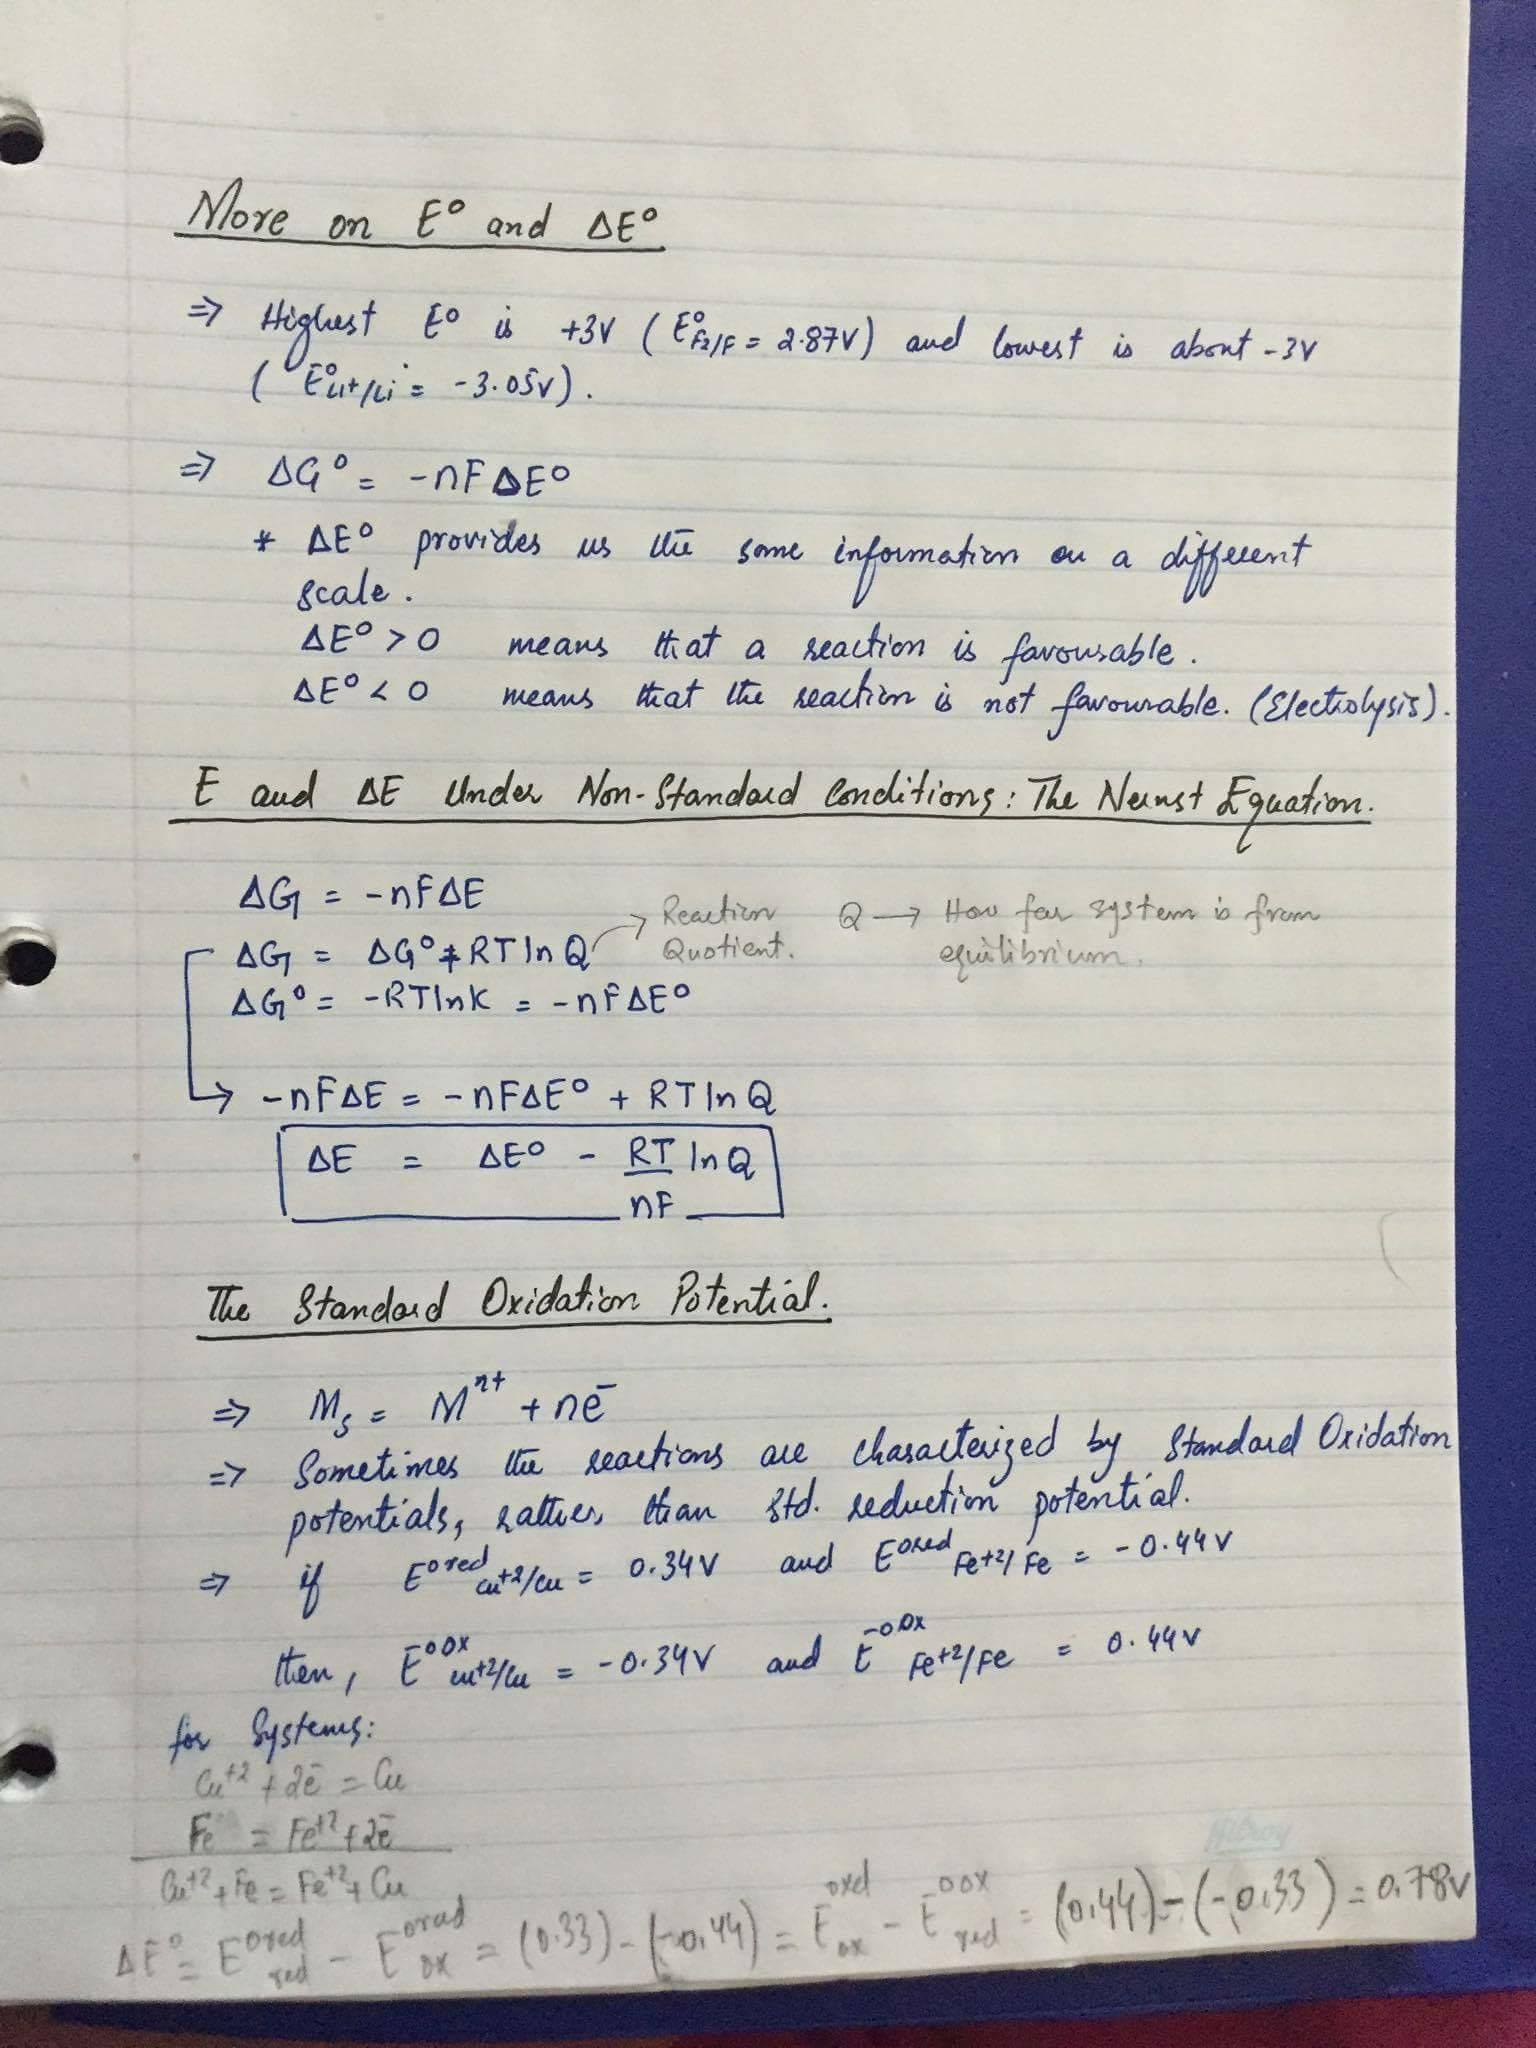 More on E° and ΔE°
⇒ Highest E° is +3V ( E°F2/F = 2.87V) and lowest is about -3V
( E°Li+/Li = -3.05V).
⇒ ΔG° = -nFΔE°
* ΔE° provides us the same information on a different
scale.
ΔE° > 0 means that a reaction is favourable.
ΔE° < 0 means that the reaction is not favourable. (Electrolysis).
E and ΔE Under Non-Standard Conditions: The Nernst Equation.
ΔG = -nFΔE
ΔG = ΔG° + RT ln Q → Reaction Quotient. Q → How far system is from
equilibrium.
ΔG° = -RTlnK = -nFΔE°
→ -nFΔE = -nFΔE° + RT ln Q
ΔE = ΔE° - RT/nF ln Q
The Standard Oxidation Potential.
⇒ Ms = Mⁿ⁺ + nē
⇒ Sometimes the reactions are characterized by Standard Oxidation
potentials, rather than Std. reduction potential.
⇒ if E°red Cu+2/Cu = 0.34V and E°red Fe+2/Fe = -0.44V
then, E°ox Cu+2/Cu = -0.34V and E°ox Fe+2/Fe = 0.44V
for Systems:
Cu+2 + 2ē = Cu
Fe = Fe+2 + 2ē
Cu+2 + Fe = Fe+2 + Cu
ΔE° = E°red red - E°red ox = (0.33) - (-0.44) = E°oxd ox - E°ox red = (0.44) - (-0.33) = 0.78V
Hilroy